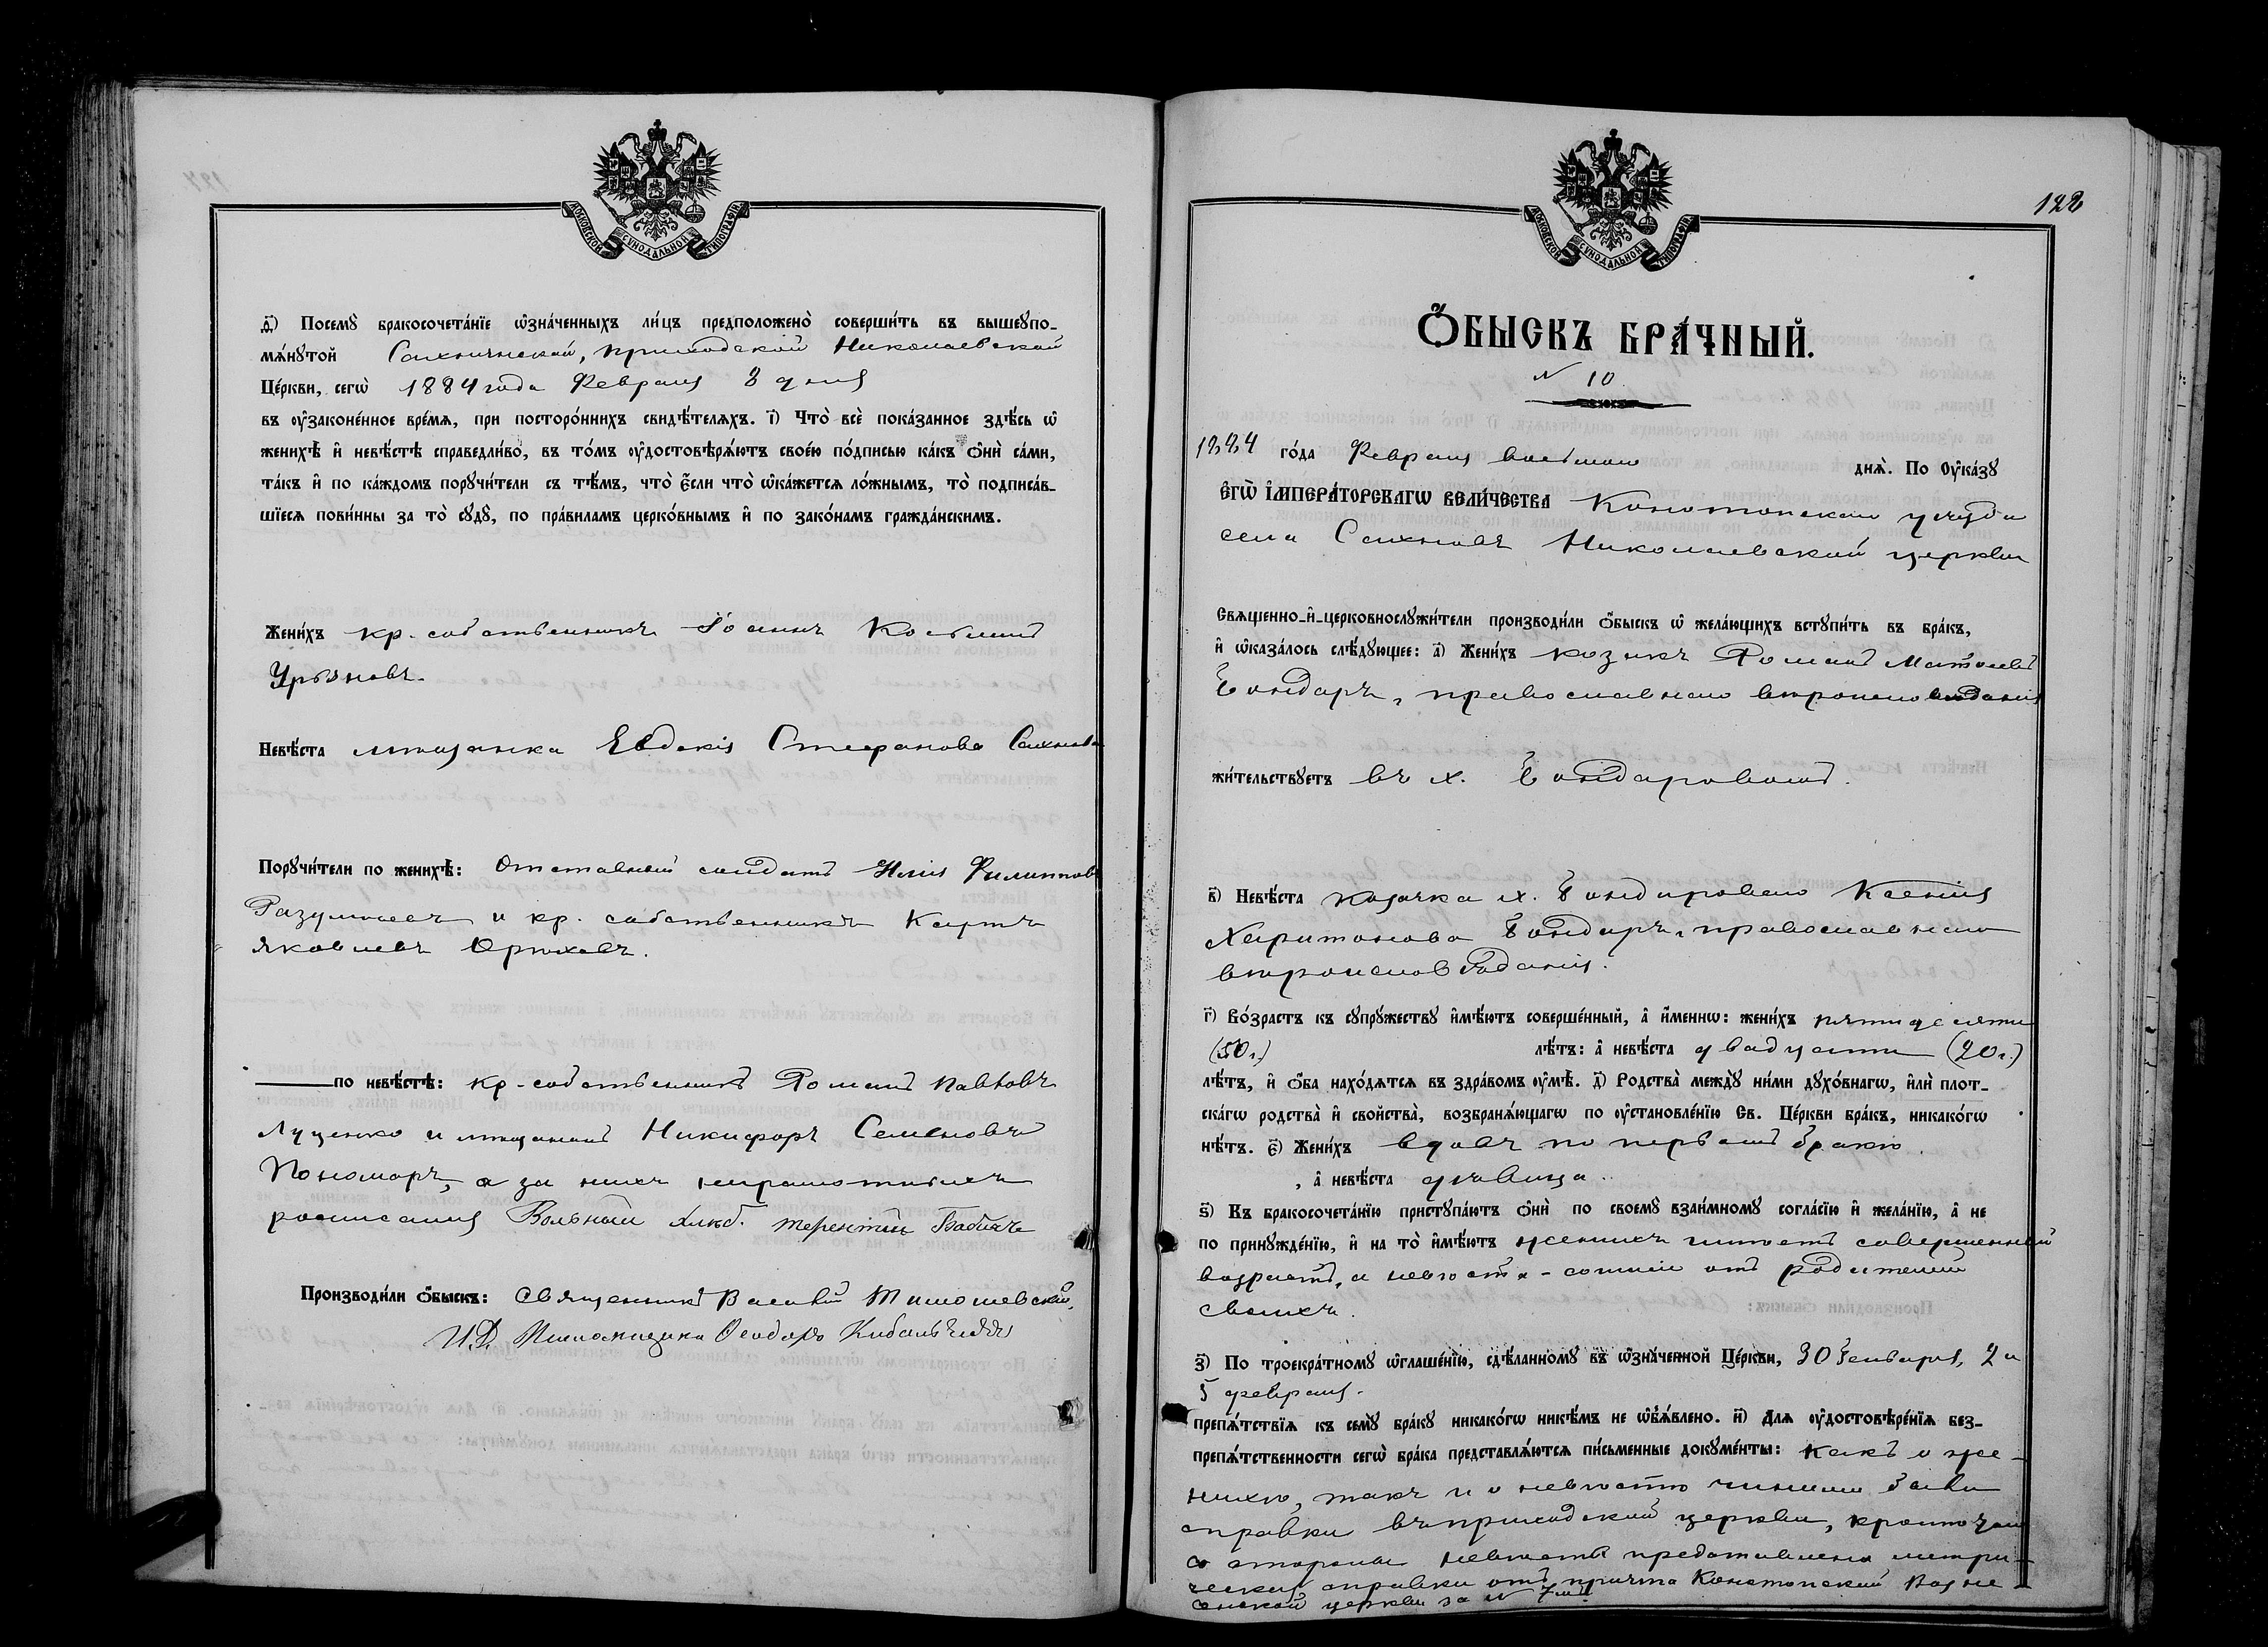 МОСКОВСКОЙ СУНОДАЛЬНОЙ ТИПОГРАФІИ
ѳ҃) Посемꙋ̀ бракосочета́нїе ѡ҆зна́ченныхъ ли́цъ предположено̀ соверши́ть въ вышеꙋпо-
мѧ́нꙋтой Сахновской, приходской Николаевской
Це́ркви, сегѡ̀ 1884 года Февраля 8 дня
въ ᲂу҆зако́не́нное вре́мѧ, при посторо́ннихъ свидѣ́телѧхъ. і҃) Что̀ всѐ пока́занное здѣ́сь ѡ҆
женихѣ̀ и҆ невѣ́стѣ справедли́во, въ то́мъ ᲂу҆достовѣрѧ́ютъ свое́ю по́дписью ка́къ ѻ҆нѝ са́ми,
та́къ и҆ по ка́ждомъ порꙋчи́тели съ тѣ́мъ, что̀ є҆́сли что̀ ѡ҆ка́жетсѧ ло́жнымъ, то̀ подписа́в-
шїесѧ пови́нны за то̀ сꙋдꙋ̀, по пра́виламъ церко́внымъ и҆ по зако́намъ гражда́нскимъ.
Жени́хъ кр. собственникъ Іоаннъ Косминъ
Урывновъ.
Невѣ́ста мѣщанка Евдокія Стефанова Сахнова
Порꙋчи́тели по женихѣ̀: Отставной солдатъ Илія Филипповъ
Разумѣевъ и кр. собственникъ Карпъ
Яковлевъ Орюховъ.
по невѣ́стѣ: кр-собственникъ Романъ Павловъ
Луценко и мѣщанинъ Никифоръ Семеновъ
Пономарь, а за нихъ неграмотныхъ
росписался Вольный Терентій Бабичъ
Производи́ли ѻ҆́быскъ: Священникъ Василій Тимошевскій,
И.Д. Псаломщика Ѳеодоръ Кибальчичъ
128
МОСКОВСКОЙ СУНОДАЛЬНОЙ ТИПОГРАФІИ
Ѻ҆́БЫСКЪ БРА́ЧНЫЙ.
№ 10
1884 го́да Февраля восьмого днѧ̀. По Оу҆ка́зꙋ
Є҆ГѠ̀ И҆МПЕРА́ТОРСКАГѠ ВЕЛИ́ЧЕСТВА Конотопскаго уѣзда
села Сахновъ Николаевской церкви
Свѧщенно-и҆-церковнослꙋжи́тели производи́ли ѻ҆́быскъ ѡ҆ жела́ющихъ встꙋпи́ть въ бра́къ,
и҆ ѡ҆каза́лось слѣ́дꙋющее: а҃) Жени́хъ козакъ Романъ Матѳеевъ
Бондарь, православнаго вѣроисповѣданія
жи́тельствꙋетъ въ х. Бондаровомъ.
в҃) Невѣ́ста козачка х. Бондарового Ксенія
Харитонова Бондарь, православнаго
вѣроисповѣданія.
г҃) Во́зрастъ къ сꙋпрꙋ́жествꙋ и҆мѣ́ютъ соверше́нный, а҆ и҆́меннѡ: жени́хъ пятидесяти
(50 г.) лѣ́тъ: а҆ невѣ́ста двадцати (20 г.)
лѣ́тъ, и҆ ѻ҆́ба нахо́дѧтсѧ въ здра́вомъ ᲂу҆мѣ̀. д҃) Родства̀ междꙋ̀ ни́ми дꙋхо́внагѡ, и҆лѝ плот-
ска́гѡ родства̀ и҆ сво́йства, возбранѧ́ющагѡ по ᲂу҆становле́нїю Св. Це́ркви бра́къ, никако́гѡ
нѣ́тъ. є҃) Жени́хъ вдовъ по первомъ бракѣ
, а҆ невѣ́ста дѣвица.
ѕ҃) Къ бракосочета́нїю пристꙋпа́ютъ ѻ҆нѝ по своемꙋ̀ взаи́мномꙋ согла́сїю и҆ жела́нїю, а҆ не
по принꙋжде́нїю, и҆ на то̀ и҆мѣ́ютъ женихъ имѣетъ совершенный
возрастъ, а невѣста - согласіе отъ родителей
своихъ.
з҃) По троекра́тномꙋ ѡ҆глаше́нїю, сдѣ́ланномꙋ въ ѡ҆зна́ченной Це́ркви, 30 Генваря, 2 и
5 февраля.
препѧ́тствїѧ къ семꙋ̀ бра́кꙋ никако́гѡ никѣ́мъ не ѡ҆б̾ѧ́влено. и҃) Длѧ ᲂу҆достовѣре́нїѧ без-
препѧ́тственности сегѡ̀ бра́ка представлѧ́ютсѧ пи́сьменные докꙋме́нты: какъ о же-
нихѣ, такъ и о невѣстѣ чинены были
справки въ приходской церкви, кромѣ того
со стороны невѣсты представлена метри-
ческая справка отъ причта Конотопской Возне-
сенской церкви за №